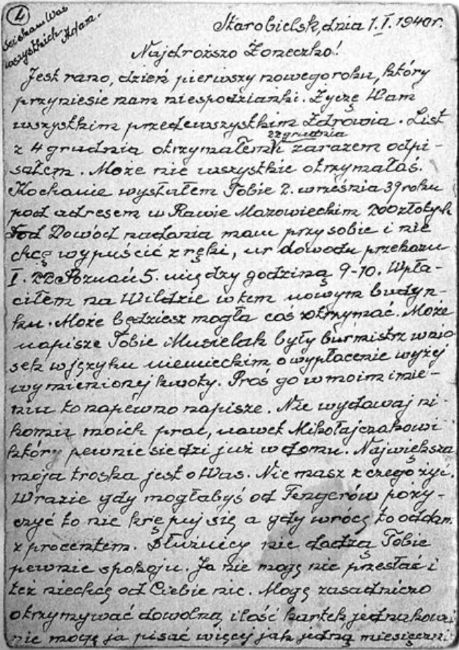 4
Ściskam Was
wszystkich Adam.
Starobielsk, dnia 1. I. 1940r.
Najdroższo Żoneczko!
Jest rano, dzień pierwszy nowego roku, który
przyniesie nam niespodzianki. Życzę Wam
wszystkim przedewszystkim Zdrowia. List
22 grudnia
z 4 grudnia otrzymałem i zarazem odpi-
sałem. Może nie wszystkie otrzymałaś.
Kochanie wysłałem Tobie 2. września 39 roku
pod adresem w Rawie Mazowieckim 200 złotych
Dowód nadania mam przy sobie i nie
chcę wypuścić z ręki, nr dowodu przekazu
I. Poznań 5. między godziną 9-10. Wpła-
ciłem na Wildzie w tem nowym budyn-
ku. Może będziesz mogła coś otrzymać. Może
napisze Tobie Musielak były burmistrz wnio-
sek w języku niemieckim o wypłacenie wyżej
wymienionej kwoty. Proś go w moim imie-
niu to napewno napisze. Nie wydawaj ni-
komu moich prac, nawet Mikołajczakowi
który pewnie siedzi już w domu. Największa
moja troska jest o Was. Nie masz z czego żyć.
W razie gdy mogłabyś od Tengerów poży-
czyć to nie krępuj się a gdy wrócę to oddam
z procentem. Dłużnicy nie dadzą Tobie
pewnie spokoju. Ja nie mogę nic przesłać i
też niechcę od Ciebie nic. Mogę zasadniczo
otrzymywać dowolną ilość kartek jednakowoż
nie mogę ja pisać więcej jak jedną miesięcznie